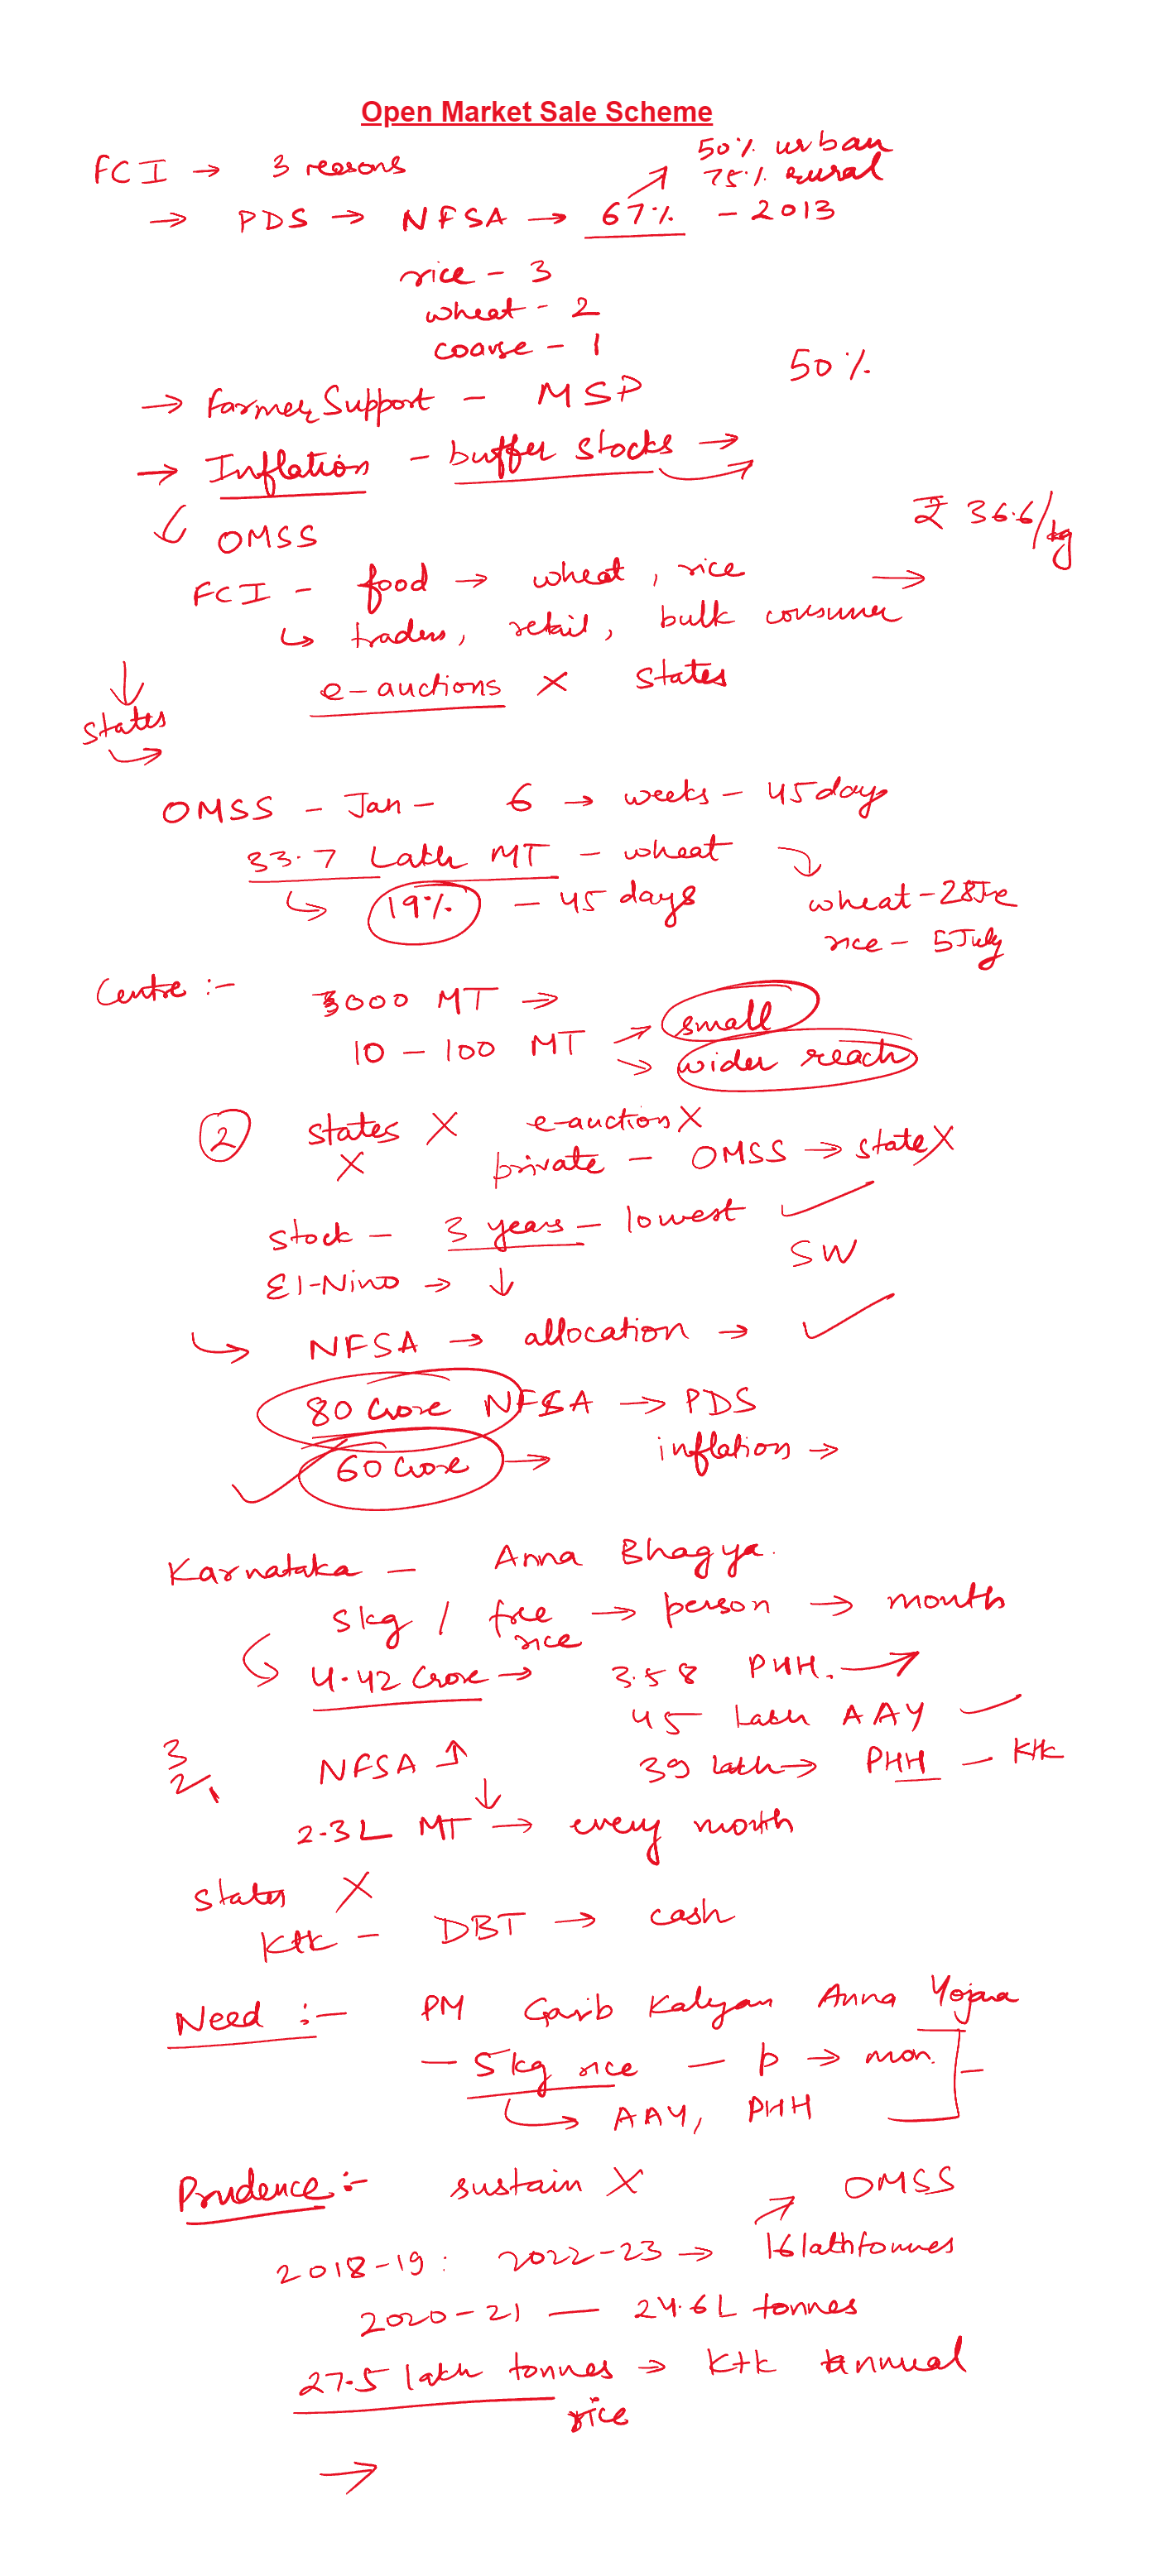 Open Market Sale Scheme
FCI → 3 reasons
50% urban
75% rural
→ PDS → NFSA → 67% - 2013
rice - 3
wheat - 2
coarse - 1
50%
→ Farmer Support - MSP
→ Inflation - buffer stocks →
OMSS
₹ 36.6/kg
FCI - food → wheat, rice →
↳ traders, retail, bulk consumer
e-auctions X states
↓
states
OMSS - Jan - 6 → weeks - 45 days
33.7 Lakh MT - wheat
↳ 19% - 45 days
wheat - 28 Je
rice - 5 July
Centre :-
3000 MT →
10 - 100 MT → small
→ wider reach
② states X e-auction X
X private - OMSS → state X
stock - 3 years - lowest ✓
SW
El-Nino → ↓
↳ NFSA → allocation → ✓
80 crore NFSA → PDS
60 crore → inflation →
Karnataka - Anna Bhagya.
5kg / free rice → person → month
↳ 4.42 crore → 3.58 PHH. →
45 Lakh AAY ✓
39 lakh → PHH - Ktk
3
2,
NFSA ↑
↓
2.3L MT → every month
states X
Ktk - DBT → cash
Need :- PM Garib Kalyan Anna Yojana
- 5kg rice - p → mon.
↳ AAY, PHH
Prudence :- sustain X
OMSS
2018-19 : 2022-23 → 16 lakh tonnes
2020-21 — 24.6L tonnes
27.5 lakh tonnes → Ktk annual
rice
→